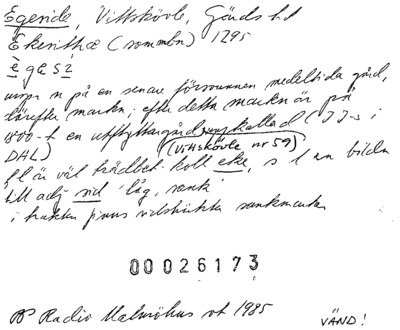 Egeside, Vittskövle, Gärds hd
Ekerithæ (sommbn) 1295
ègæsì
urspr n på en senare försvunnen medeltida gård,
därefter marken; efter detta marken är på
1800-t en utflyttargård nyskallad (JJ-s i
DAL) (Vittskövle nr 59)
fl är väl trädbet koll eke, s l en bildn
till adj sid 'låg, sank'
i trakten finns vidsträckta sankmarker
00026173
BP Radio Malmöhus vt 1985
VÄND!